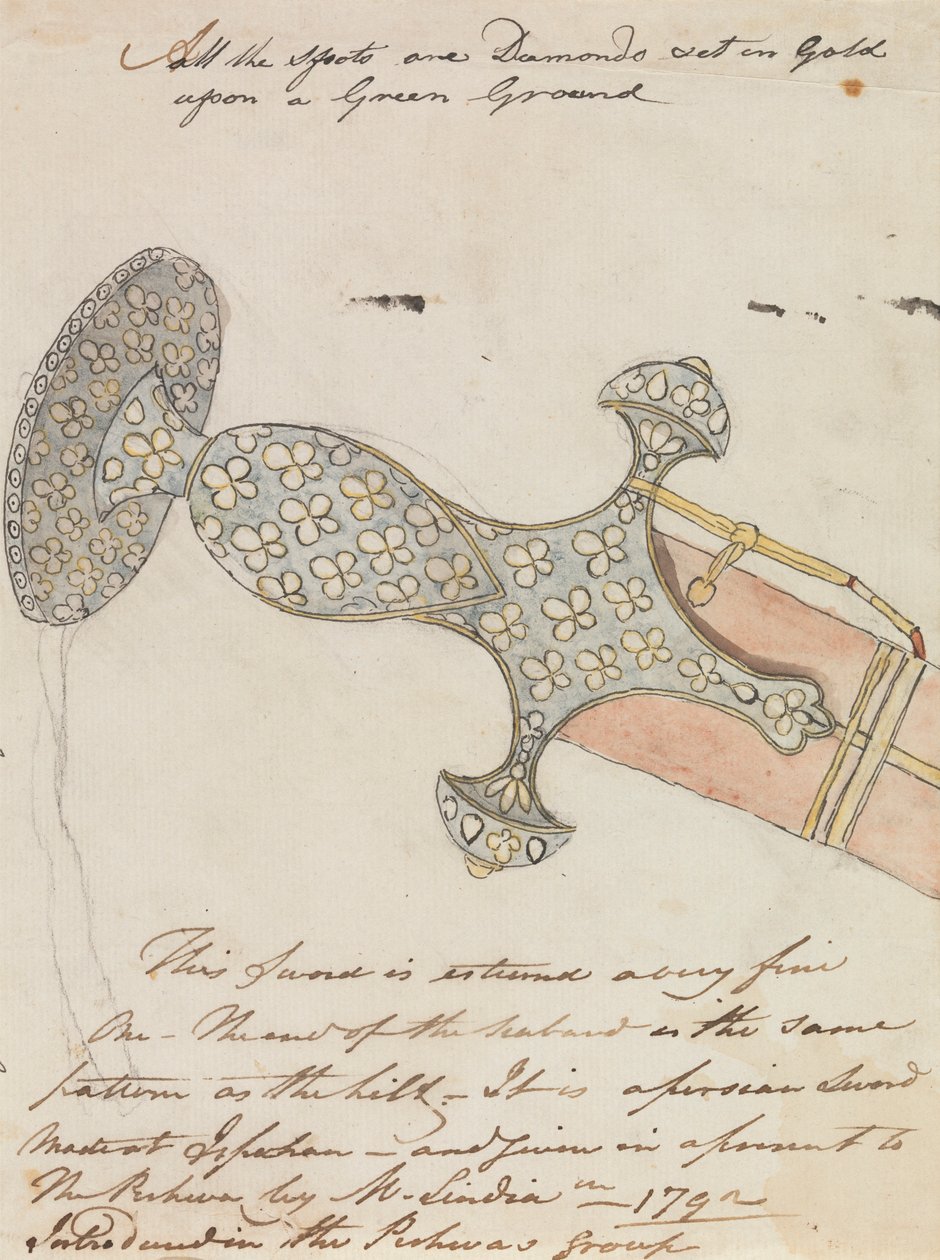 All the spots are Diamonds set in Gold
upon a Green Ground
This Sword is esteemd a very fine
One - The end of the scabard is the same
pattern as the hilt - It is a persian Sword
Made at Ispahan - and given in a present to
The Peshwa by M. Sindia in 1792
Introduced in the Peshwas group